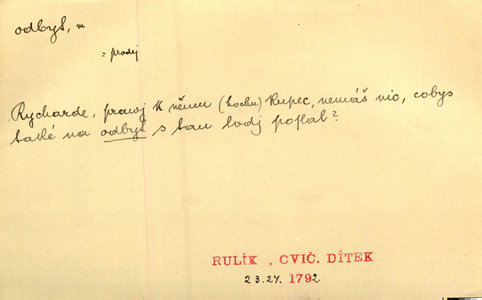 odbyt, m
= prodej
Rycharde, prawj k němu (hochu) kupec, nemáš nic, cobys
také na odbyt s tau lodj poslal?
RULÍK, CVIČ. DÍTEK
23.24. 1792